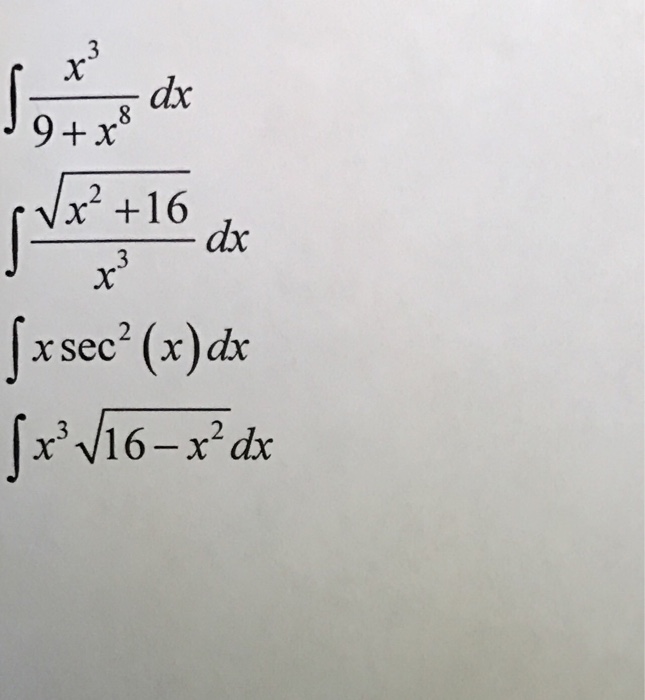 ∫ x³/(9+x⁸) dx
∫ √(x²+16)/x³ dx
∫ x sec² (x) dx
∫ x³ √(16−x²) dx